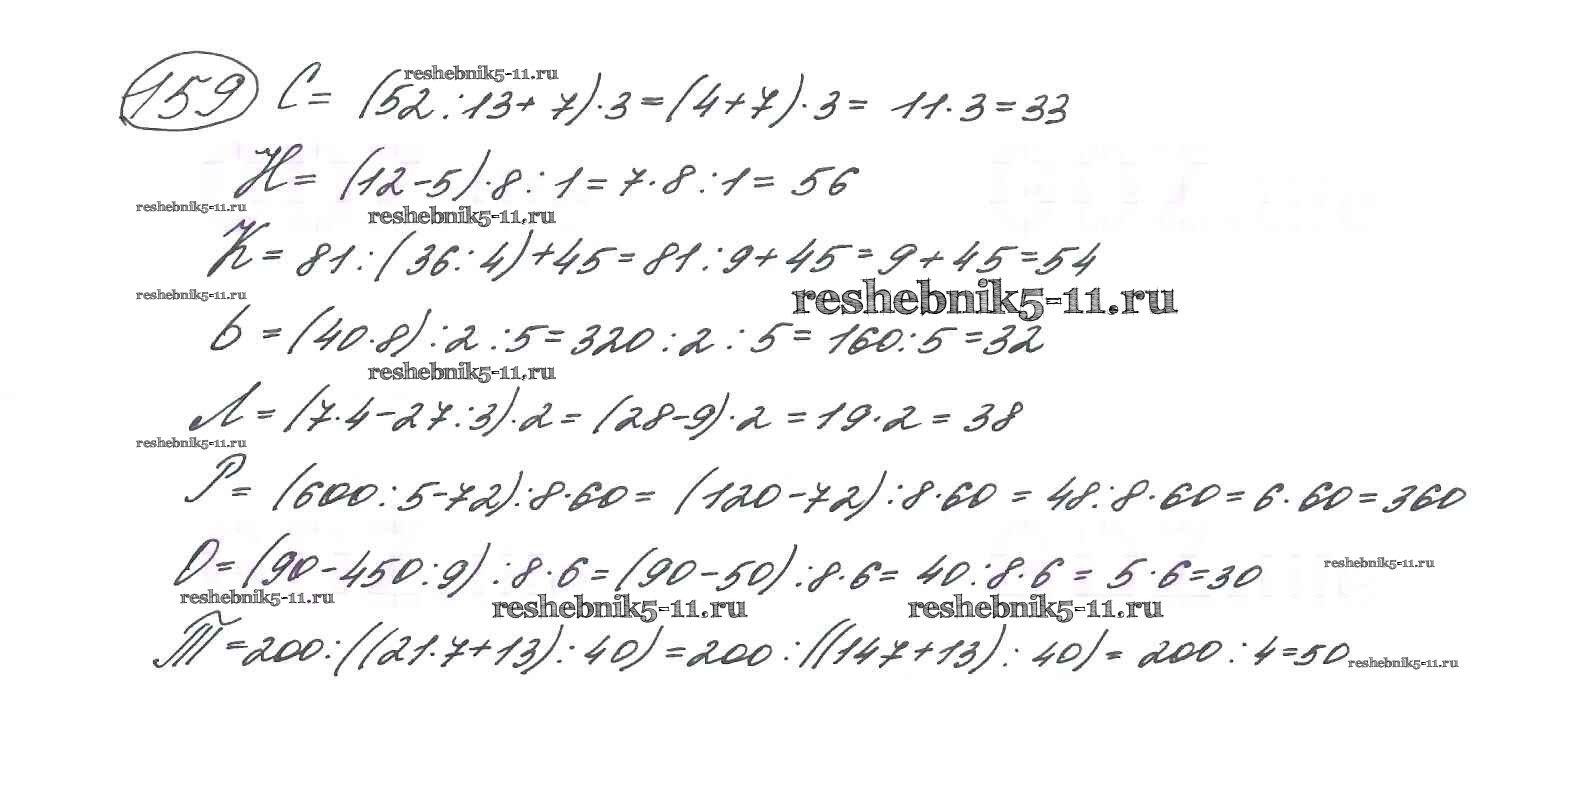 159 С = (52 : 13 + 7) · 3 = (4 + 7) · 3 = 11 · 3 = 33
reshebnik5-11.ru
Н = (12 - 5) · 8 : 1 = 7 · 8 : 1 = 56
reshebnik5-11.ru
reshebnik5-11.ru
К = 81 : (36 : 4) + 45 = 81 : 9 + 45 = 9 + 45 = 54
reshebnik5-11.ru
reshebnik5-11.ru
Ь = (40 · 8) : 2 : 5 = 320 : 2 : 5 = 160 : 5 = 32
reshebnik5-11.ru
Л = (7 · 4 - 27 : 3) · 2 = (28 - 9) · 2 = 19 · 2 = 38
reshebnik5-11.ru
Р = (600 : 5 - 72) : 8 · 60 = (120 - 72) : 8 · 60 = 48 : 8 · 60 = 6 · 60 = 360
О = (90 - 450 : 9) : 8 · 6 = (90 - 50) : 8 · 6 = 40 : 8 · 6 = 5 · 6 = 30
reshebnik5-11.ru
reshebnik5-11.ru
reshebnik5-11.ru
reshebnik5-11.ru
Т = 200 : ((21 · 7 + 13) : 40) = 200 : ((147 + 13) : 40) = 200 : 4 = 50
reshebnik5-11.ru